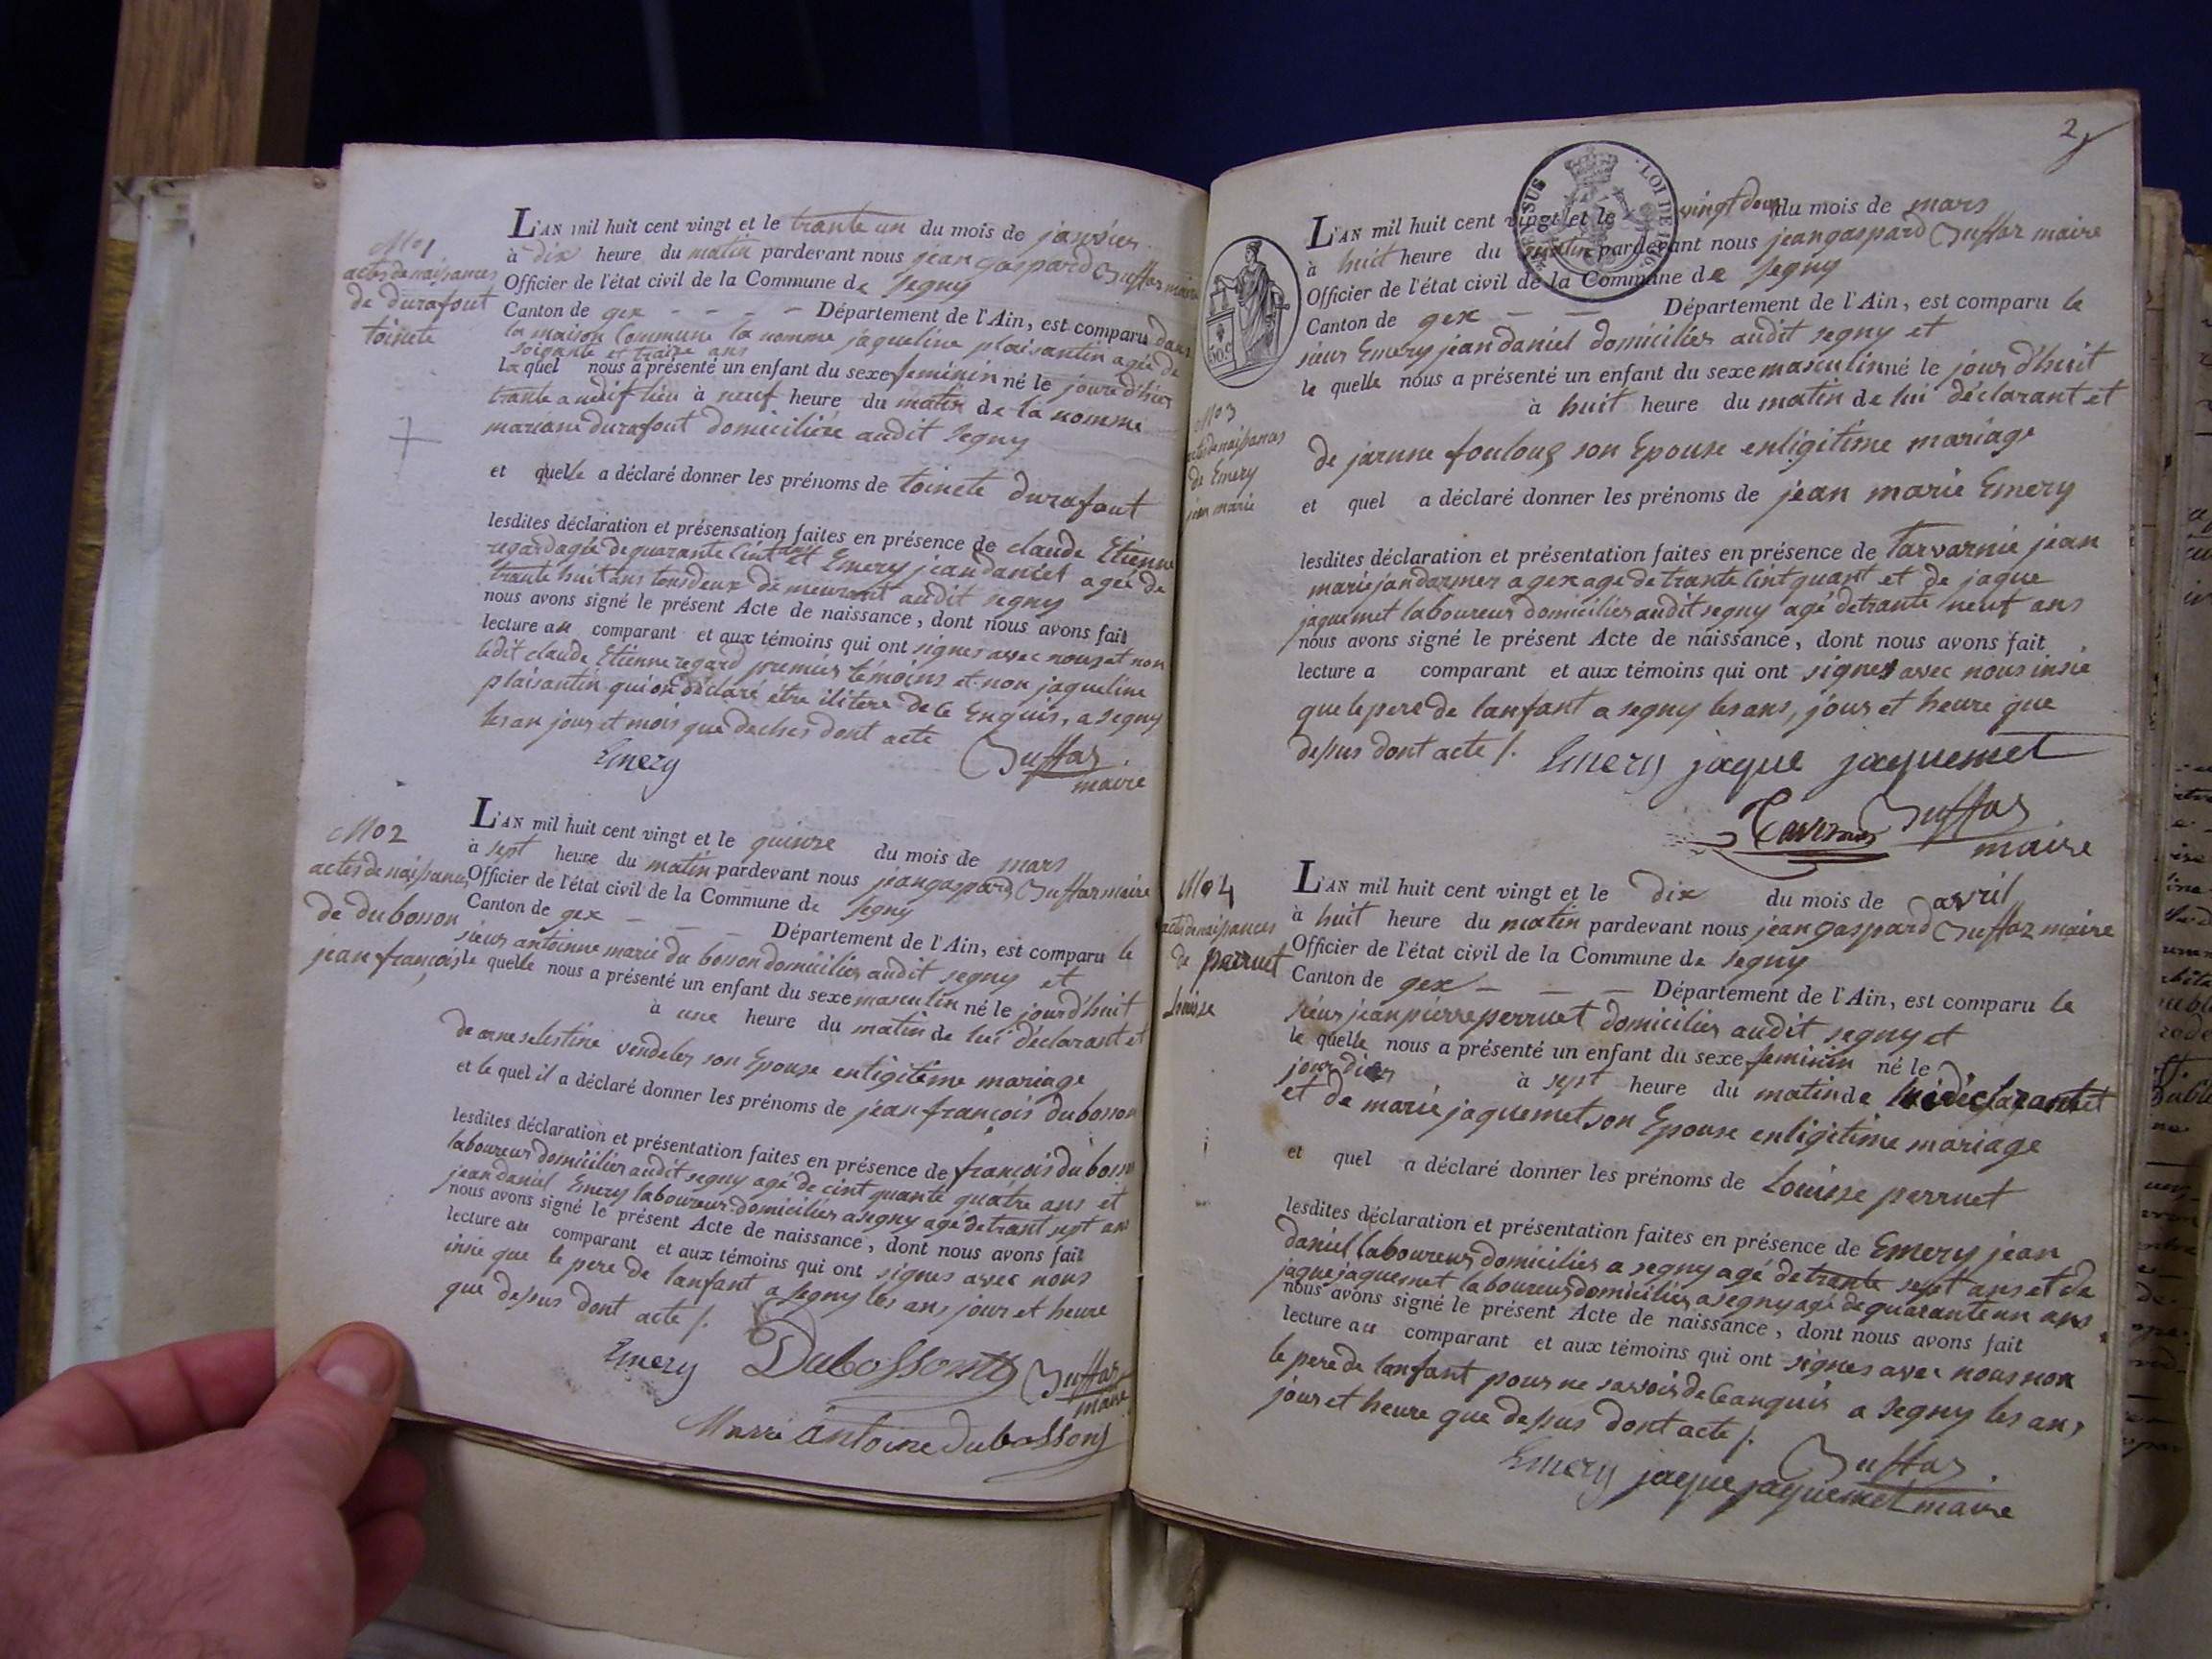 No 1
actes de naissances
de durafout
toinete
L'AN mil huit cent vingt et le trante un du mois de janvier
à dix heure du matin pardevant nous jean gaspard Buffaz maire
Officier de l'état civil de la Commune de Segny
Canton de gex - - - - Département de l'Ain, est comparu dans
la maison Commune la nomme jaqueline plaisantin agée de
soigante et traize ans
la quel nous a présenté un enfant du sexe feminin né le jour d'hier
trante audit lieu à neuf heure du matin de la nomme
mariane durafout domiciliére audit Segny
et quelle a déclaré donner les prénoms de toinete durafout
lesdites déclaration et présensation faites en présence de claude Etienne
regard agée de quarante Cint ans et Emery jean daniel agée de
trante huit ans tous deux demeurant audit segny
nous avons signé le présent Acte de naissance, dont nous avons fait
lecture au comparant et aux témoins qui ont signes avec nous et non
ledit claude Etienne regard premier témoins et non jaqueline
plaisantin qui on déclaré étre ilitere de ce Enquis, a segny
les an jours et mois que dessus dont acte
Emery Buffaz
maire
No 2
actes de naissances
de dubosson
jean françois
L'AN mil huit cent vingt et le quinze du mois de mars
à sept heure du matin pardevant nous jean gaspard Buffaz maire
Officier de l'état civil de la Commune de Segny
Canton de gex - - - Département de l'Ain, est comparu le
sieur antoinne marie du bosson domicilier audit segny et
le quelle nous a présenté un enfant du sexe masculin né le jourd'huit
à une heure du matin de lui déclarant et
de anne selestine vendeler son Epouse enligitime mariage
et le quel il a déclaré donner les prénoms de jean françois dubosson
lesdites déclaration et présentation faites en présence de françois du bosson
laboureur domicilier audit segny agé de cint quante quatre ans et
jean daniel Emery laboureur domicilier a segny agé de trant sept ans
nous avons signé le présent Acte de naissance, dont nous avons fait
lecture au comparant et aux témoins qui ont signes avec nous
insie que le pere de lanfant a segny les ans jour et heure
que dessus dont acte /.
Emery Dubosson Buffaz
maire
Marie Antoine dubosson
2
L'AN mil huit cent vingt et le vingt deux du mois de mars
à huit heure du matin pardevant nous jean gaspard Buffaz maire
Officier de l'état civil de la Commune de Segny
Canton de gex - - Département de l'Ain, est comparu le
sieur Emery jean daniel domicilier audit segny et
le quelle nous a présenté un enfant du sexe masculin né le jour d'huit
à huit heure du matin de lui déclarant et
No 3
actes de naissances
de Emery
jean marie
de jarnne foulouz son Epouse enligitime mariage
et quel a déclaré donner les prénoms de jean marie Emery
lesdites déclaration et présentation faites en présence de Tarvarnié jean
marie jandarmer a gex age de trante cint quant et de jaque
jaquemet laboureur domicilier audit segny agé de trante neuf ans
nous avons signé le présent Acte de naissance, dont nous avons fait
lecture a comparant et aux témoins qui ont signes avec nous insie
que le pere de lanfant a segny les ans, jours et heure que
dessus dont acte /. Emery jaque jaquemet
Buffaz
maire
No 4
actes de naissances
de perruet
Louise
L'AN mil huit cent vingt et le dix du mois de avril
à huit heure du matin pardevant nous jean gaspard Buffaz maire
Officier de l'état civil de la Commune de Segny
Canton de gex - - - Département de l'Ain, est comparu le
sieur jean pierre perruet domicilier audit segny et
le quelle nous a présenté un enfant du sexe feminin né le
jour dier à sept heure du matin de lui déclarant et
et de marie jaquemet son Epouse enligitime mariage
et quel a déclaré donner les prénoms de Louise perruet
lesdites déclaration et présentation faites en présence de Emery jean
daniel laboureur domicilier a segny agé de trante sept ans et de
jaque jaquemet laboureur domicilier a segny agé de quarante un ans
nous avons signé le présent Acte de naissance, dont nous avons fait
lecture au comparant et aux témoins qui ont signes avec nous non
le pere de lanfant pour ne savoir de ce anquis a segny les ans
jour et heure que dessus dont acte /.
Emery jaque jaquemet Buffaz
maire